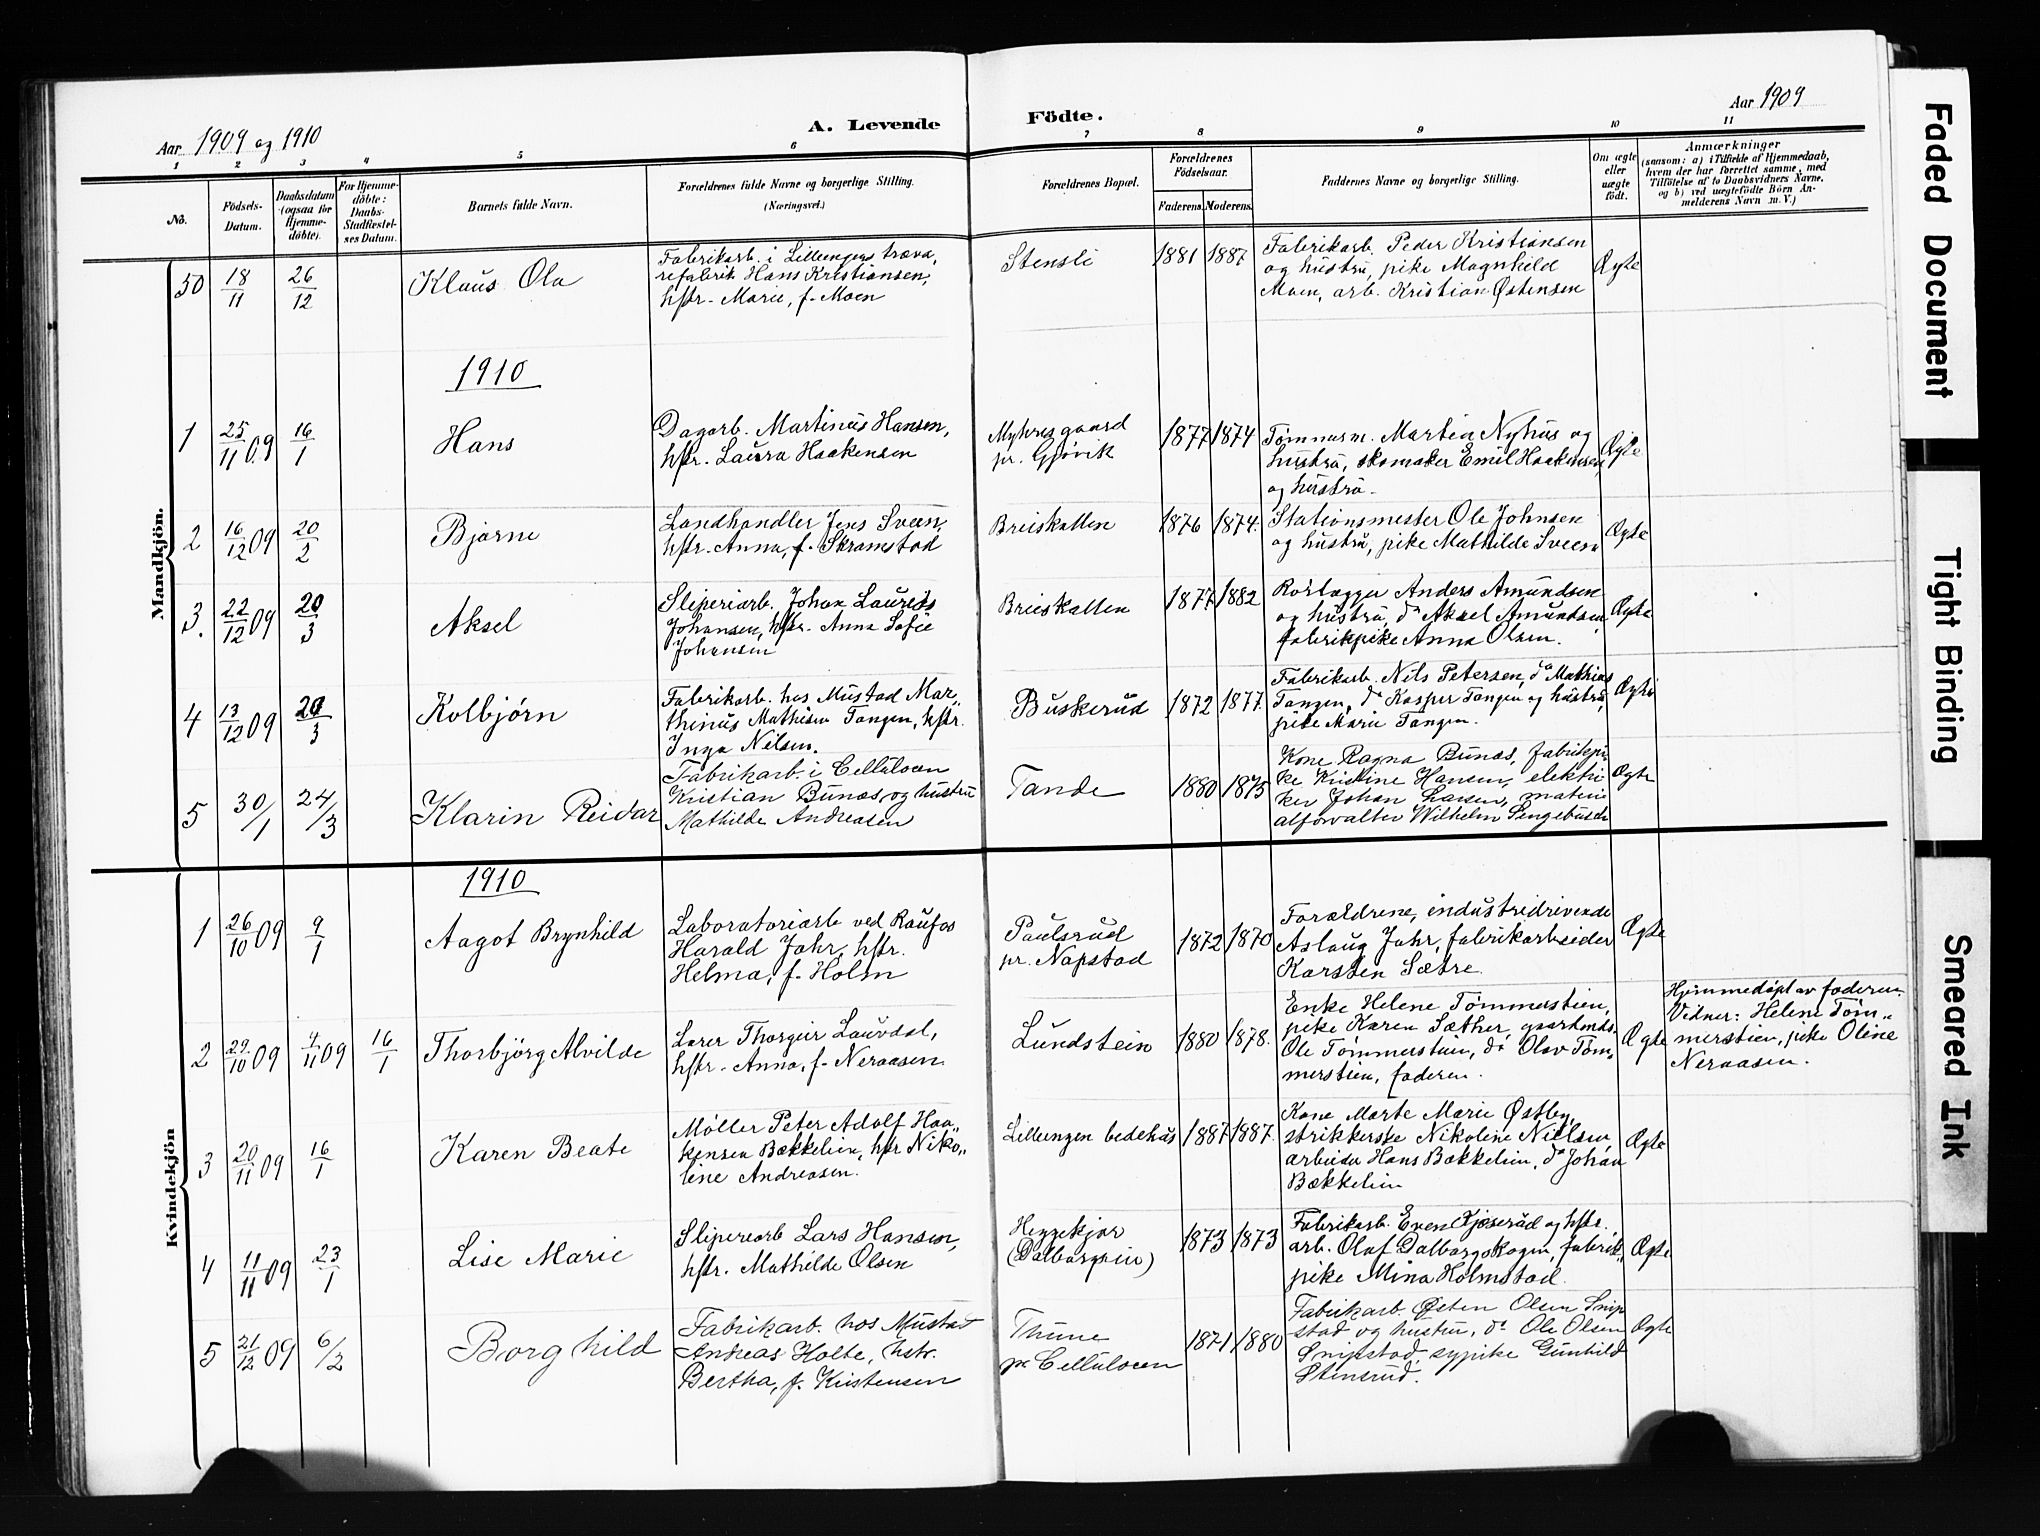 Aar 1909 og 1910
A. Levende
Födte.
Aar 1909
1 2 3 4 5 6 7 8 9 10 11
No.
Födsels-
Datum.
Daabsdatum
(ogsaa for
Hjemme-
döbte).
For Hjemme-
döbte:
Daabs-
Stadfæstel-
ses Datum.
Barnets fulde Navn.
Forældrenes fulde Navne og borgerlige Stilling.
(Næringsvei.)
Forældrenes Bopæl.
Forældrenes
Födselsaar.
Faderens. Moderens.
Faddernes Navne og borgerlige Stilling.
Om ægte
eller
uægte
födt.
Anmærkninger
(saasom: a) i Tilfælde af Hjemmedaab,
hvem der har forrettet samme, med
Tilföielse af to Daabsvidners Navne,
og b) ved uægtefödte Börn An-
melderens Navn m. V.)
Mandkjön.
50 18/11 26/12 Klaus Ola
Fabrikarb. i Lillengens træva,
refabrik Hans Kristiansen,
hstr. Marie, f. Moen
Stensli 1881 1887
Fabrikarb. Peder Kristiansen
og hustru, pike Magnhild
Moen, arb. Kristian Østensen
Ægte
1910
1 25/11 09 16/1 Hans
Dagarb. Martinus Hansen,
hstr. Laura Haakensen
Myhresgaard
pr. Gjøvik
1877 1874
Tømmerm. Martin Nyhus og
hustru, skomaker Emil Haakensen
og hustru.
Ægte
2 16/12 09 20/2 Bjarne
Landhandler Jens Sveen,
hstr. Anna, f. Skramstad
Breiskallen 1876 1874.
Stationsmester Ole Johnsen
og hustru, pike Mathilde Sveen
Ægte
3. 22/12 09 20/3 Aksel
Sliperiarb. Johan Laurits
Johansen, hstr. Anna Sofie
Johansen
Breiskallen 1877 1882
Rørlægger Anders Amundsen
og hustru, do Aksel Amundsen,
fabrikpike Anna Olsen.
Ægte
4 13/12 09 20/3 Kolbjørn
Fabrikarb. hos Mustad Mar„
thinus Mathisen Tangen, hstr.
Inga Nilsen.
Buskerud 1872 1877.
Fabrikarb. Nils Petersen, do Mathias
Tangen, do Kasper Tangen og hustru,
pike Marie Tangen.
Ægte
5 30/1 24/3 Klarin Reidar
Fabrikarb. i Cellulosen
Kristian Bunæs og hustru
Mathilde Andreasen
Tande 1880 1875
Kone Ragna Bunæs, fabrikpi
ke Kristine Hansen, elektri
ker Johan Larsen, materi
alforvalter Wilhelm Sengebusch
Ægte
Kvindekjön
1910
1 26/10 09 9/1 Aagot Brynhild
Laboratoriarb ved Raufos
Harald Jahr, hstr.
Helma, f. Holm
Paulsrud
pr. Næpstad
1872 1870
Forældrene, industridrivende
Aslaug Jahr, fabrikarbeider
Karsten Sætre.
Ægte
2 29/10 09 4/11 09 16/1 Thorbjörg Alvilde
Lærer Thorgeir Lauvdal,
hstr. Anna, f. Neraasen.
Lundstein 1880 1878.
Enke Helene Tømmerstien,
pike Karen Sæther, gaardmds.
Ole Tømmerstien, do Olav Tøm„
merstien, faderen.
Ægte
Hjemmedøpt av faderen.
Vidner: Helene Tøm„
merstien, pike Oline
Neraasen.
3 20/11 09 16/1 Karen Beate
Møller Peter Adolf Haa„
kensen Bækkelien, hstr Niko„
line Andreasen.
Lillengen bedehus 1887 1887.
Kone Marte Marie Østby,
strikkerske Nikoline Nielsen,
arbeider Hans Bækkelien, do Johan
Bækkelien
Ægte
4 11/11 09 23/1 Lise Marie
Sliperiarb Lars Hansen,
hstr. Mathilde Olsen
1873 1873
Fabrikarb. Even Kjøserud og hstr.
arb. Olaf Dalborgskogen, fabrik„
pike Mina Holmstad.
Ægte
5 21/12 09 6/2 Borghild
Fabrikarb. hos Mustad
Andreas Holte, hstr.
Bertha, f. Kristensen
Thune
pr Cellulosen
1871 1880
Fabrikarb. Østen Olsen Snip
stad og hustru, do Ole Olsen
Snipstad, sypike Gunhild
Stensrud.
Ægte
Faded Document
Tight Binding
Smeared Ink